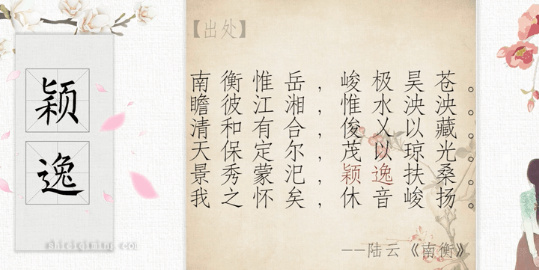 颖
逸
【出处】
南衡惟岳,峻极昊苍。
瞻彼江湘,惟水泱泱。
清和有合,俊乂以藏。
天保定尔,茂以琼光。
景秀蒙汜,颖逸扶桑。
我之怀矣,休音峻扬。
——陆云《南衡》